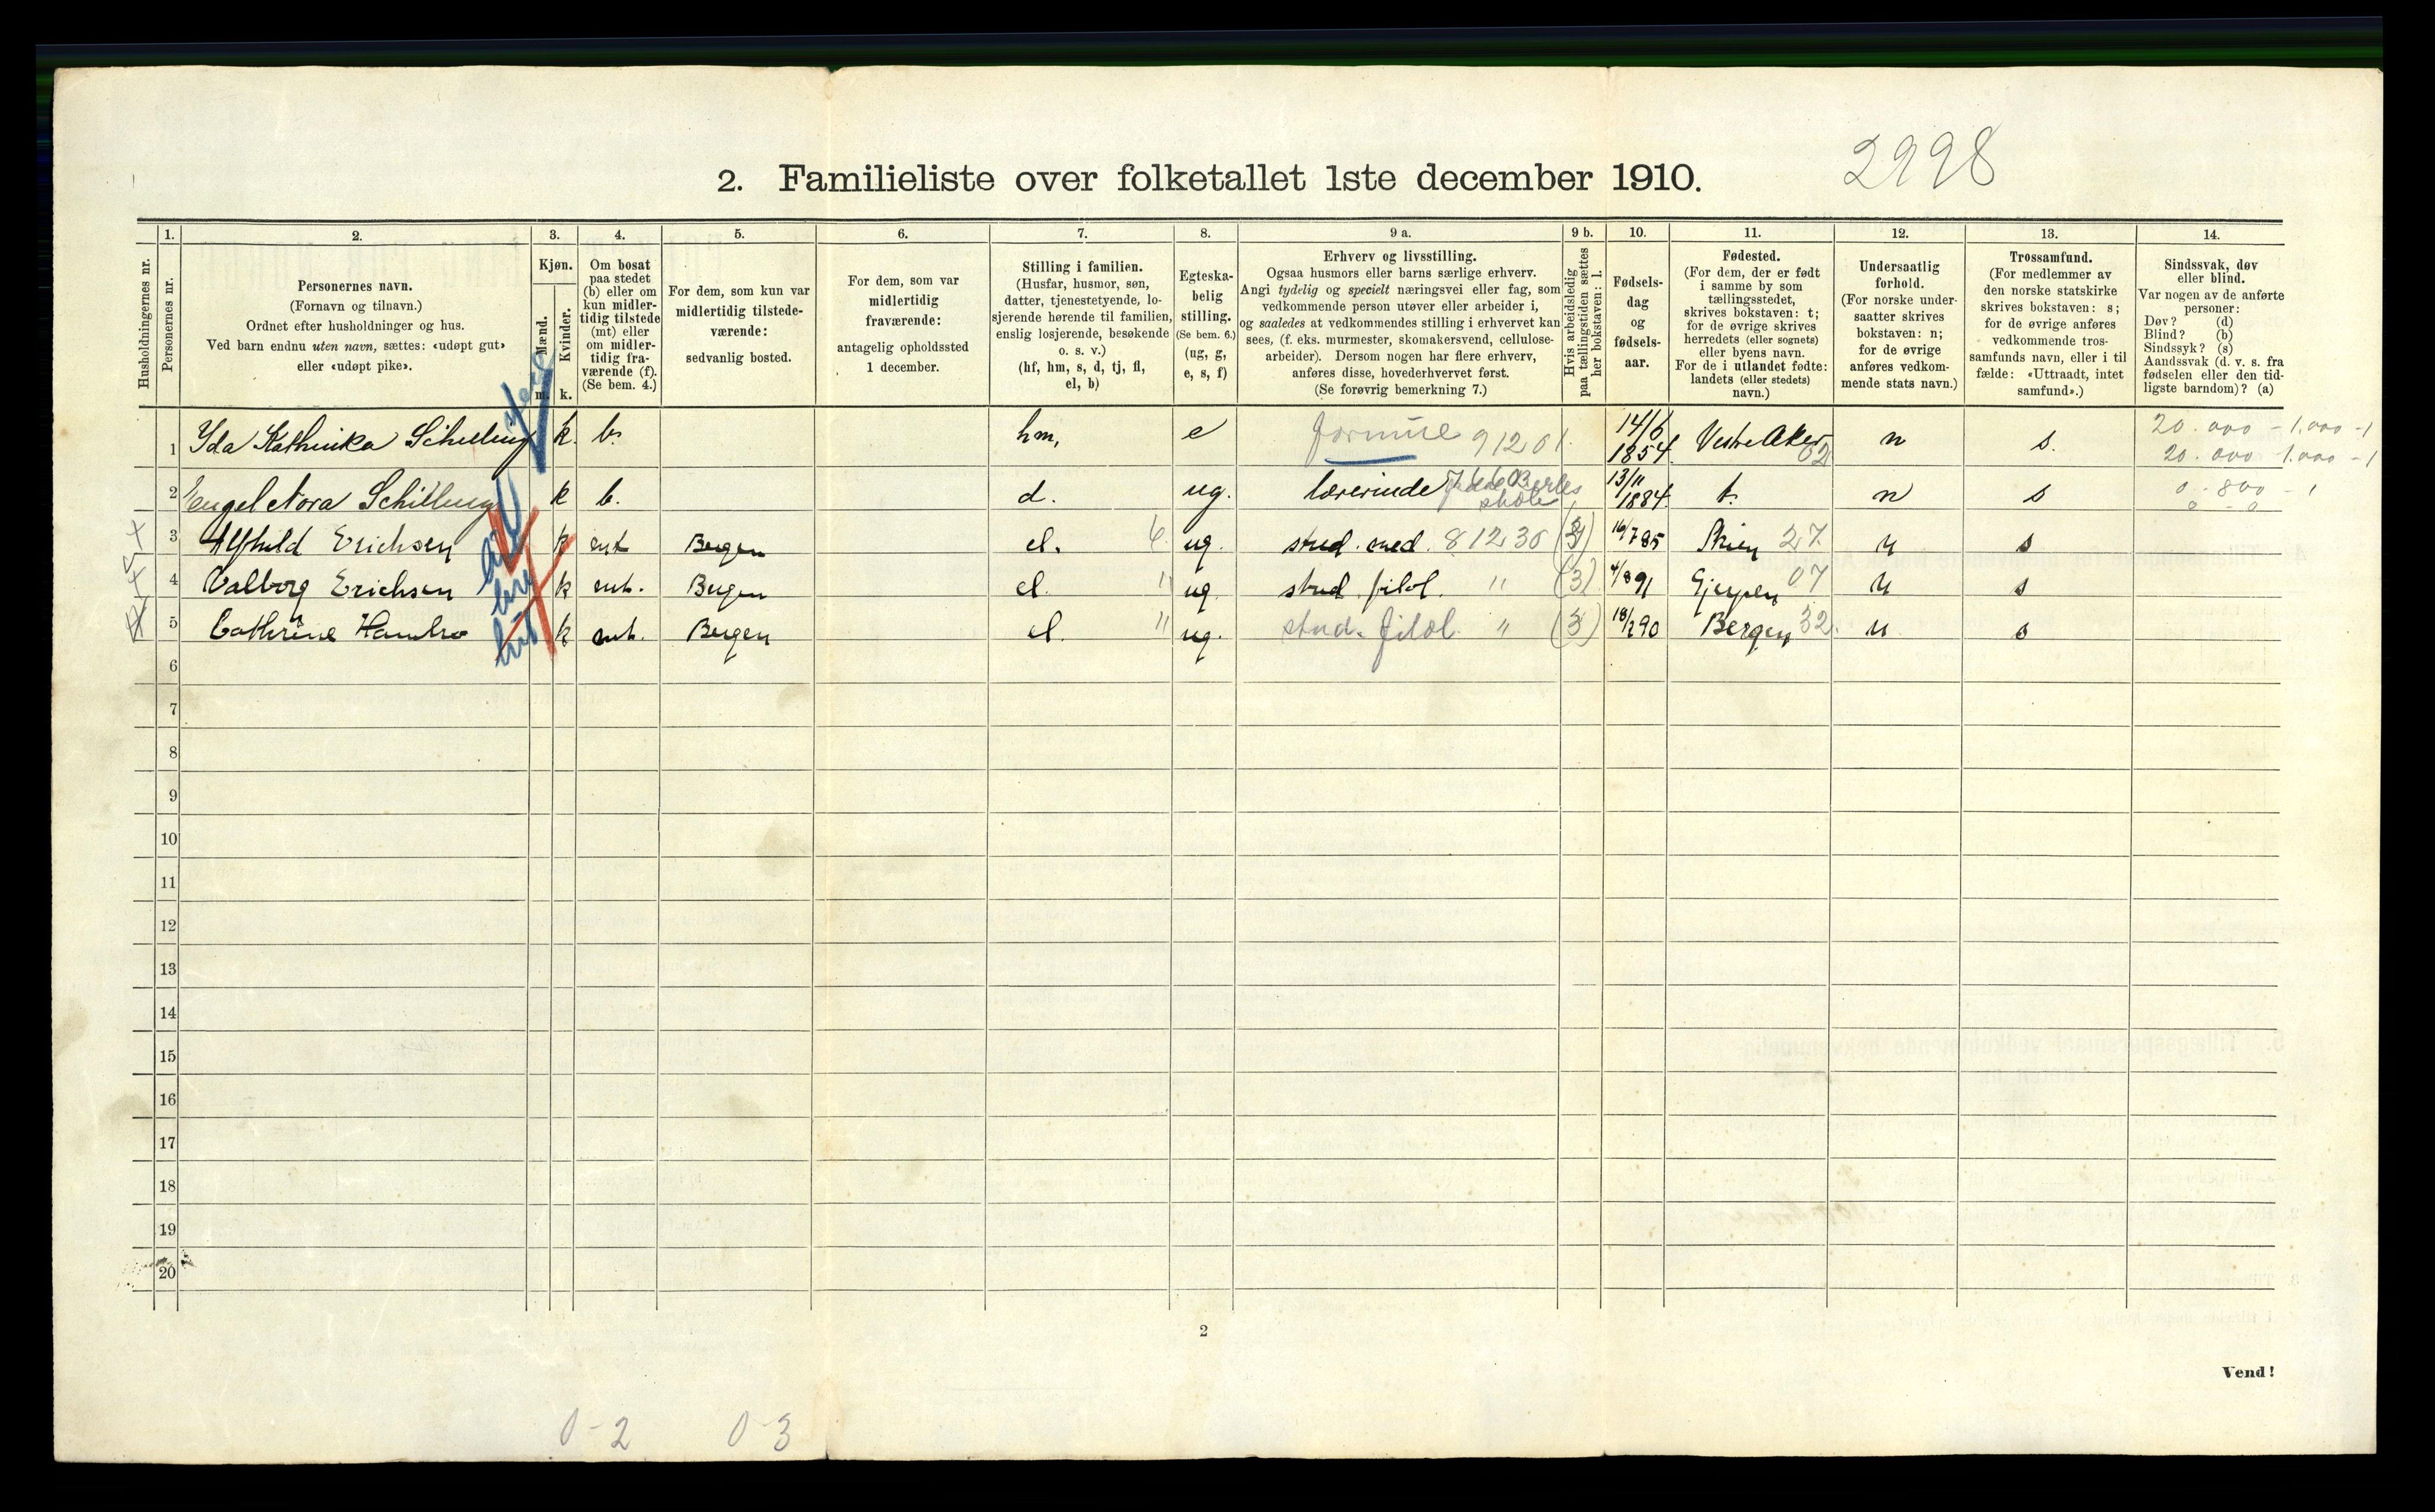 2998
2. Familieliste over folketallet 1ste december 1910.
Husholdningernes nr.
1.
Personernes nr.
2.
Personernes navn.
(Fornavn og tilnavn.)
Ordnet efter husholdninger og hus.
Ved barn endnu uten navn, sættes: «udøpt gut»
eller «udøpt pike».
3.
Kjøn.
Mænd.
Kvinder.
m. k.
4.
Om bosat
paa stedet
(b) eller om
kun midler-
tidig tilstede
(mt) eller
om midler-
tidig fra-
værende (f).
(Se bem. 4.)
5.
For dem, som kun var
midlertidig tilstede-
værende:
sedvanlig bosted.
6.
For dem, som var
midlertidig
fraværende:
antagelig opholdssted
1 december.
7.
Stilling i familien.
(Husfar, husmor, søn,
datter, tjenestetyende, lo-
sjerende hørende til familien,
enslig losjerende, besøkende
o. s. v.)
(hf, hm, s, d, tj, fl,
el, b)
8.
Egteska-
belig
stilling.
(Se bem. 6.)
(ug, g,
e, s, f)
9 a.
Erhverv og livsstilling.
Ogsaa husmors eller barns særlige erhverv.
Angi tydelig og specielt næringsvei eller fag, som
vedkommende person utøver eller arbeider i,
og saaledes at vedkommendes stilling i erhvervet kan
sees, (f. eks. murmester, skomakersvend, cellulose-
arbeider). Dersom nogen har flere erhverv,
anføres disse, hovederhvervet først.
(Se forøvrig bemerkning 7.)
9 b.
Hvis arbeidsledig
paa tællingstiden sættes
her bokstaven: l.
10.
Fødsels-
dag
og
fødsels-
aar.
11.
Fødested.
(For dem, der er født
i samme by som
tællingsstedet,
skrives bokstaven: t;
for de øvrige skrives
herredets (eller sognets)
eller byens navn.
For de i utlandet fødte:
landets (eller stedets)
navn.)
12.
Undersaatlig
forhold.
(For norske under-
saatter skrives
bokstaven: n;
for de øvrige
anføres vedkom-
mende stats navn.)
13.
Trossamfund.
(For medlemmer av
den norske statskirke
skrives bokstaven: s;
for de øvrige anføres
vedkommende tros-
samfunds navn, eller i til
fælde: «Uttraadt, intet
samfund».)
14.
Sindssvak, døv
eller blind.
Var nogen av de anførte
personer:
Døv? (d)
Blind? (b)
Sindssyk? (s)
Aandssvak (d. v. s. fra
fødselen eller den tid-
ligste barndom)? (a)
1 Ida Kathinka Schilling k. b. hm, e formue 91201. 14/6 1854 Vestre Aker 02 n s. 20.000 - 1.000 - 1
20.000 - 1.000 - 1
2 Engel Nora Schilling k b. d. ug. lærerinde Berles skole 13/11 1884 t. n s 0 - 800 - 1
0 - 0
3 Alfhild Erichsen k mt Bergen el. 6 ug. stud. med. 81230 (3) 16/7 85 Skien 27 n s
4 Valborg Erichsen k mt. Bergen el. " ug. stud. filol. " (3) 4/8 91 Gjerpen 07 n s
5 Cathrine Hambro k mt. Bergen el. " ug. stud. filol. " (3) 18/2 90 Bergen 32. n s
6
7
8
9
10
11
12
13
14
15
16
17
18
19
20
2
Vend!
0-2 0-3